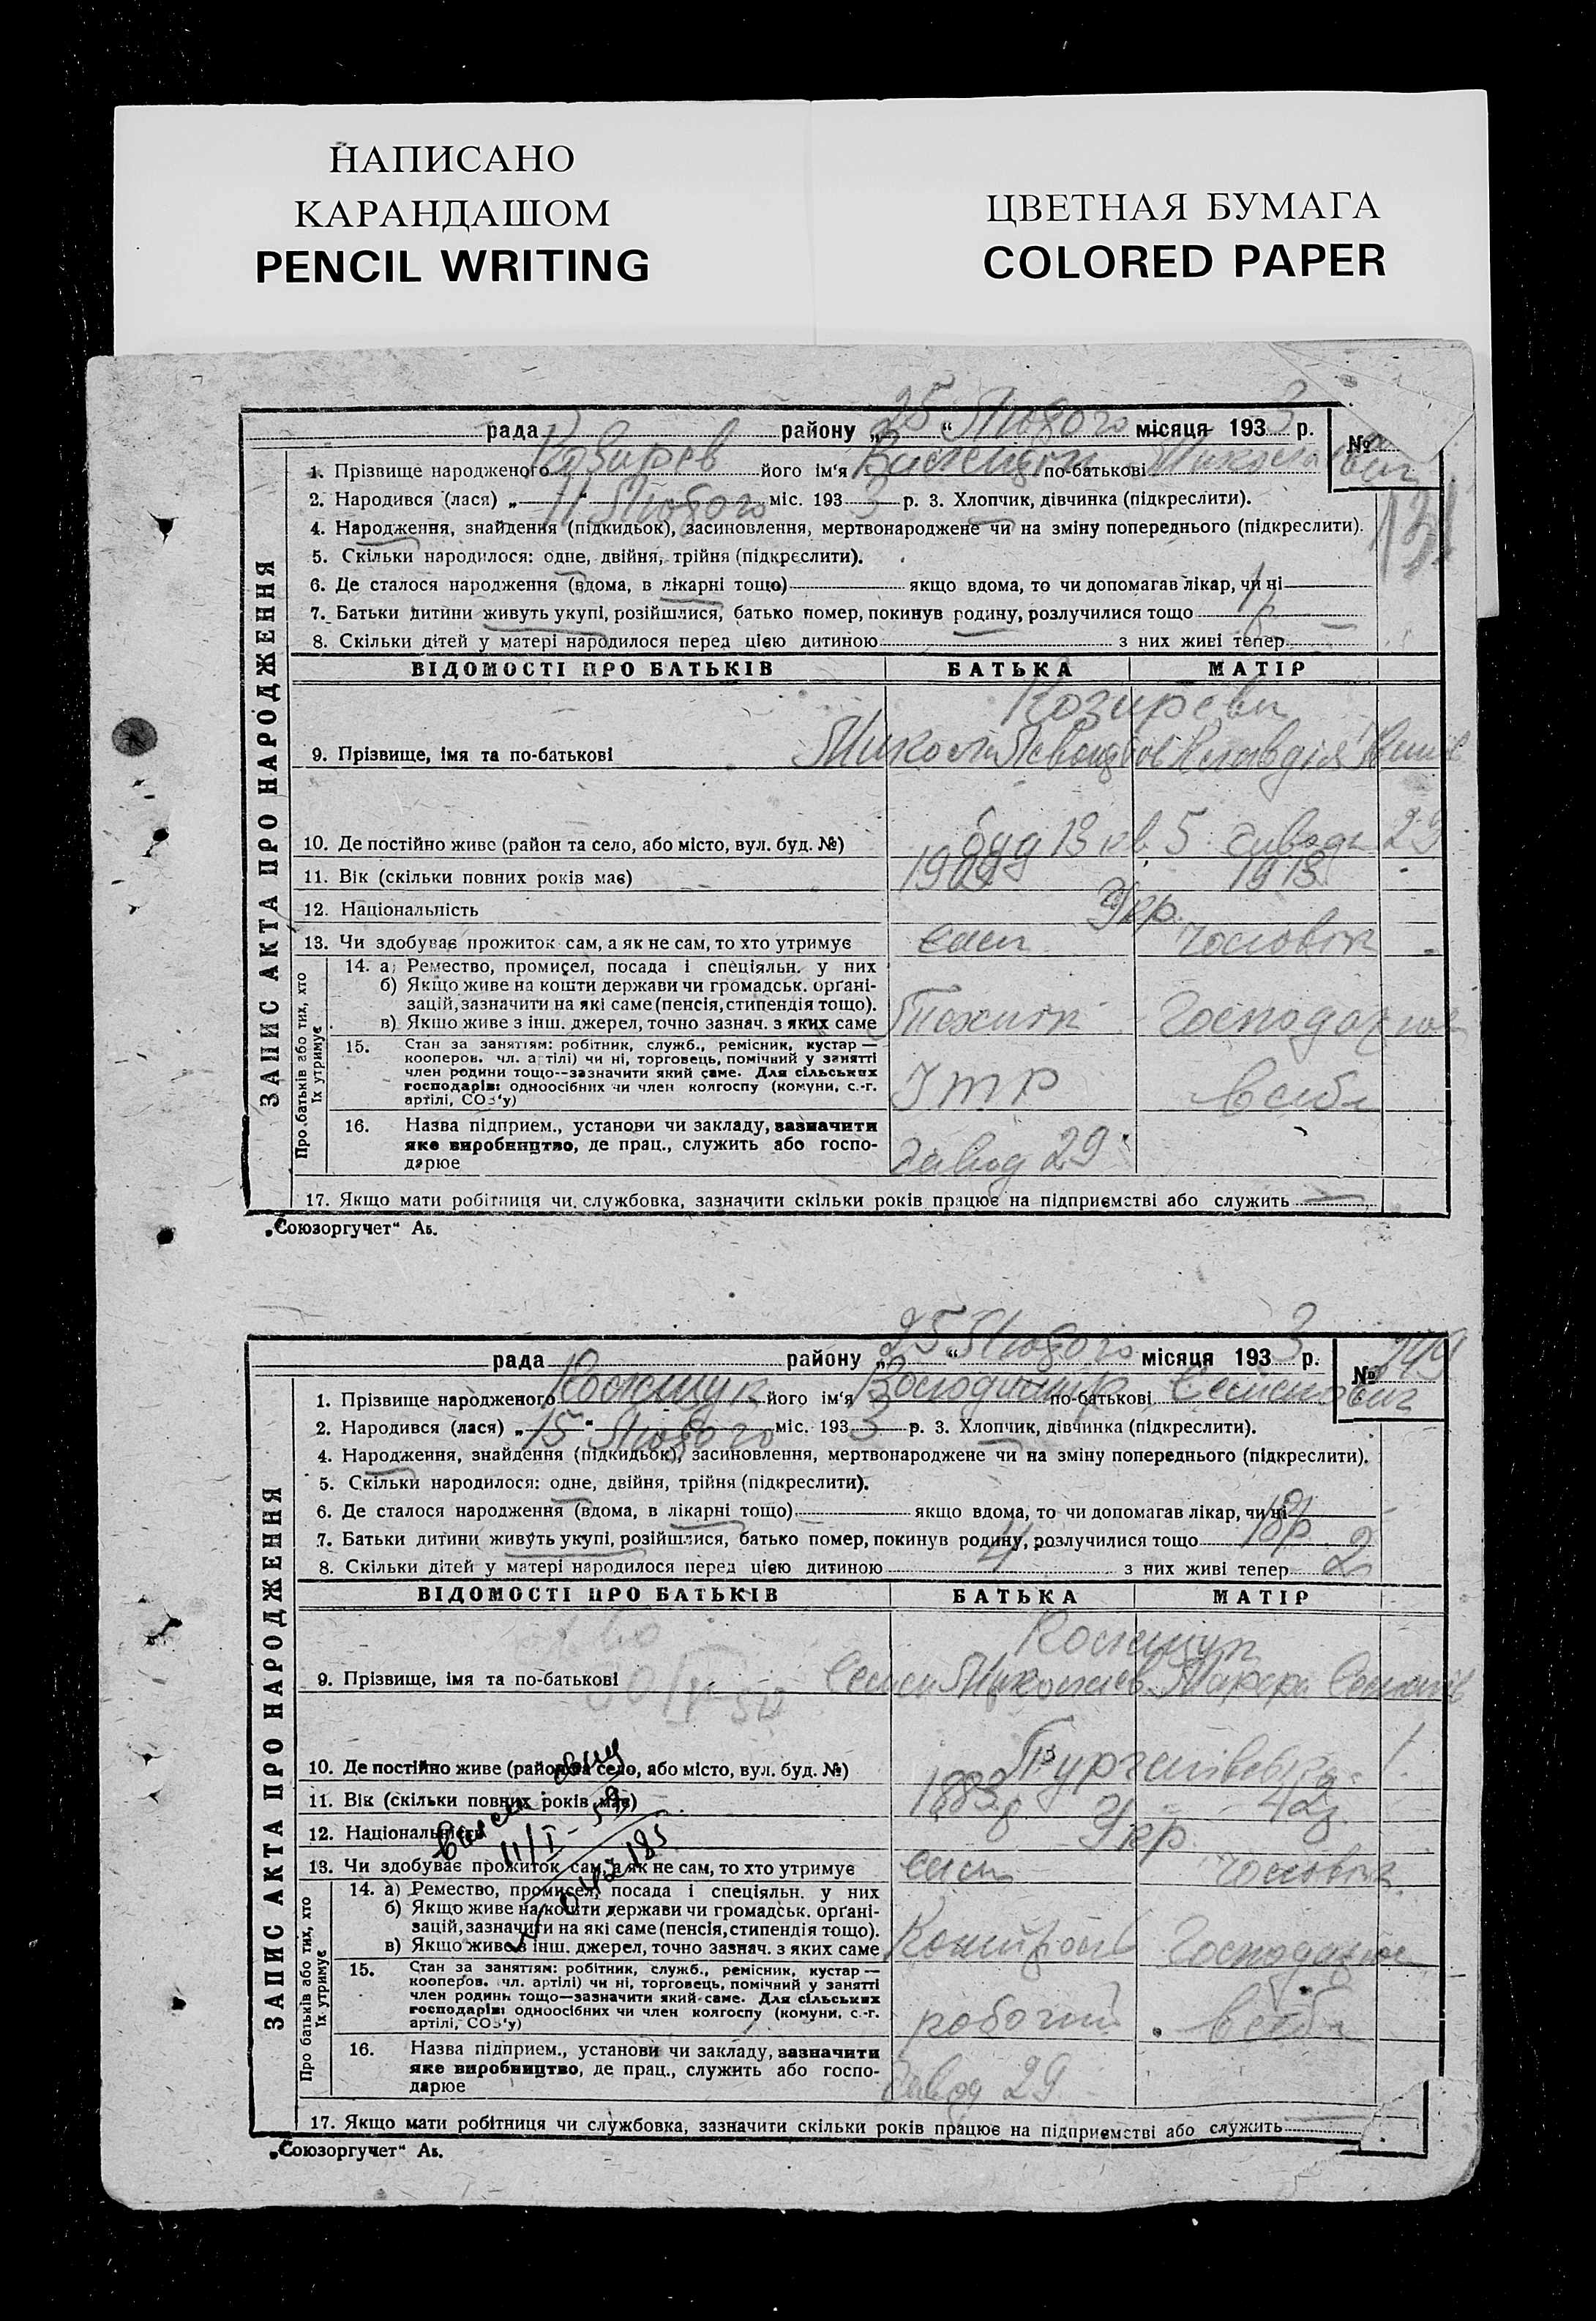 НАПИСАНО
КАРАНДАШОМ
PENCIL WRITING
ЦВЕТНАЯ БУМАГА
COLORED PAPER
ЗАПИС АКТА ПРО НАРОДЖЕННЯ
рада району „25“ Лютого місяця 1933 р. №
1. Прізвище народженого Козирев його ім‘я по-батькові Миколаевич
131
2. Народився (лася) „11“ Лютого міс. 1933 р. 3. Хлопчик, дівчинка (підкреслити).
4. Народження, знайдення (підкидьок), засиновлення, мертвонароджене чи на зміну попереднього (підкреслити).
5. Скільки народилося: одне, двійня, трійня (підкреслити).
6. Де сталося народження (вдома, в лікарні тощо) якщо вдома, то чи допомагав лікар, чи ні
7. Батьки дитини живуть укупі, розійшлися, батько помер, покинув родину, розлучилися тощо 1 р
8. Скільки дітей у матері народилося перед цією дитиною — з них живі тепер —
ВІДОМОСТІ ПРО БАТЬКІВ БАТЬКА МАТІР
Козиреви
9. Прізвище, імя та по-батькові Микола Клавдія
10. Де постійно живе (район та село, або місто, вул. буд. №) буд 13 кв. 5 29
11. Вік (скільки повних років має) 1909 1913
12. Національність Укр.
13. Чи здобуває прожиток сам, а як не сам, то хто утримує сам чоловік
Про батьків або тих, хто їх утримує
14. а) Ремество, промисел, посада і спеціяльн. у них
б) Якщо живе на кошти держави чи громадськ. органі-
зацій, зазначити на які саме (пенсія, стипендія тощо).
в) Якщо живе з інш. джерел, точно зазнач. з яких саме Технік Господарює
15. Стан за заняттям: робітник, служб., ремісник, кустар —
кооперов. чл. артілі) чи ні, торговець, помічний у занятті
член родини тощо--зазначити який саме. Для сільських
господарів: одноосібних чи член колгоспу (комуни, с.-г.
артілі, СОЗ‘у) ІТР в себе
16. Назва підприєм., установи чи закладу, зазначити
яке виробництво, де прац., служить або госпо-
дарює завод 29
17. Якщо мати робітниця чи службовка, зазначити скільки років працює на підприємстві або служить —
„Союзоргучет“ Ав.
ЗАПИС АКТА ПРО НАРОДЖЕННЯ
рада району „25“ Лютого місяця 1933 р. № 749
1. Прізвище народженого його ім‘я Володимир по-батькові Семенович
2. Народився (лася) „15“ Лютого міс. 1933 р. 3. Хлопчик, дівчинка (підкреслити).
4. Народження, знайдення (підкидьок), засиновлення, мертвонароджене чи на зміну попереднього (підкреслити).
5. Скільки народилося: одне, двійня, трійня (підкреслити).
6. Де сталося народження (вдома, в лікарні тощо) якщо вдома, то чи допомагав лікар, чи ні
7. Батьки дитини живуть укупі, розійшлися, батько помер, покинув родину, розлучилися тощо 18 р.
8. Скільки дітей у матері народилося перед цією дитиною 4 з них живі тепер 2
ВІДОМОСТІ ПРО БАТЬКІВ БАТЬКА МАТІР
9. Прізвище, імя та по-батькові Семен Миколаев
10. Де постійно живе (район та село, або місто, вул. буд. №)
11. Вік (скільки повних років має) 1883
12. Національність Укр.
11/I-
13. Чи здобуває прожиток сам, а як не сам, то хто утримує сам чоловік
Про батьків або тих, хто їх утримує
14. а) Ремество, промисел, посада і спеціяльн. у них
б) Якщо живе на кошти держави чи громадськ. органі-
зацій, зазначити на які саме (пенсія, стипендія тощо).
в) Якщо живе з інш. джерел, точно зазнач. з яких саме Господарює
15. Стан за заняттям: робітник, служб., ремісник, кустар —
кооперов. чл. артілі) чи ні, торговець, помічний у занятті
член родинь тощо—зазначити який саме. Для сільських
господарів: одноосібних чи член колгоспу (комуни, с.-г.
артілі, СОЗ‘у) робочий в себе
16. Назва підприєм., установи чи закладу, зазначити
яке виробництво, де прац., служить або госпо-
дарює завод 29
17. Якщо мати робітниця чи службовка, зазначити скільки років працює на підприємстві або служить
„Союзоргучет“ Ав.